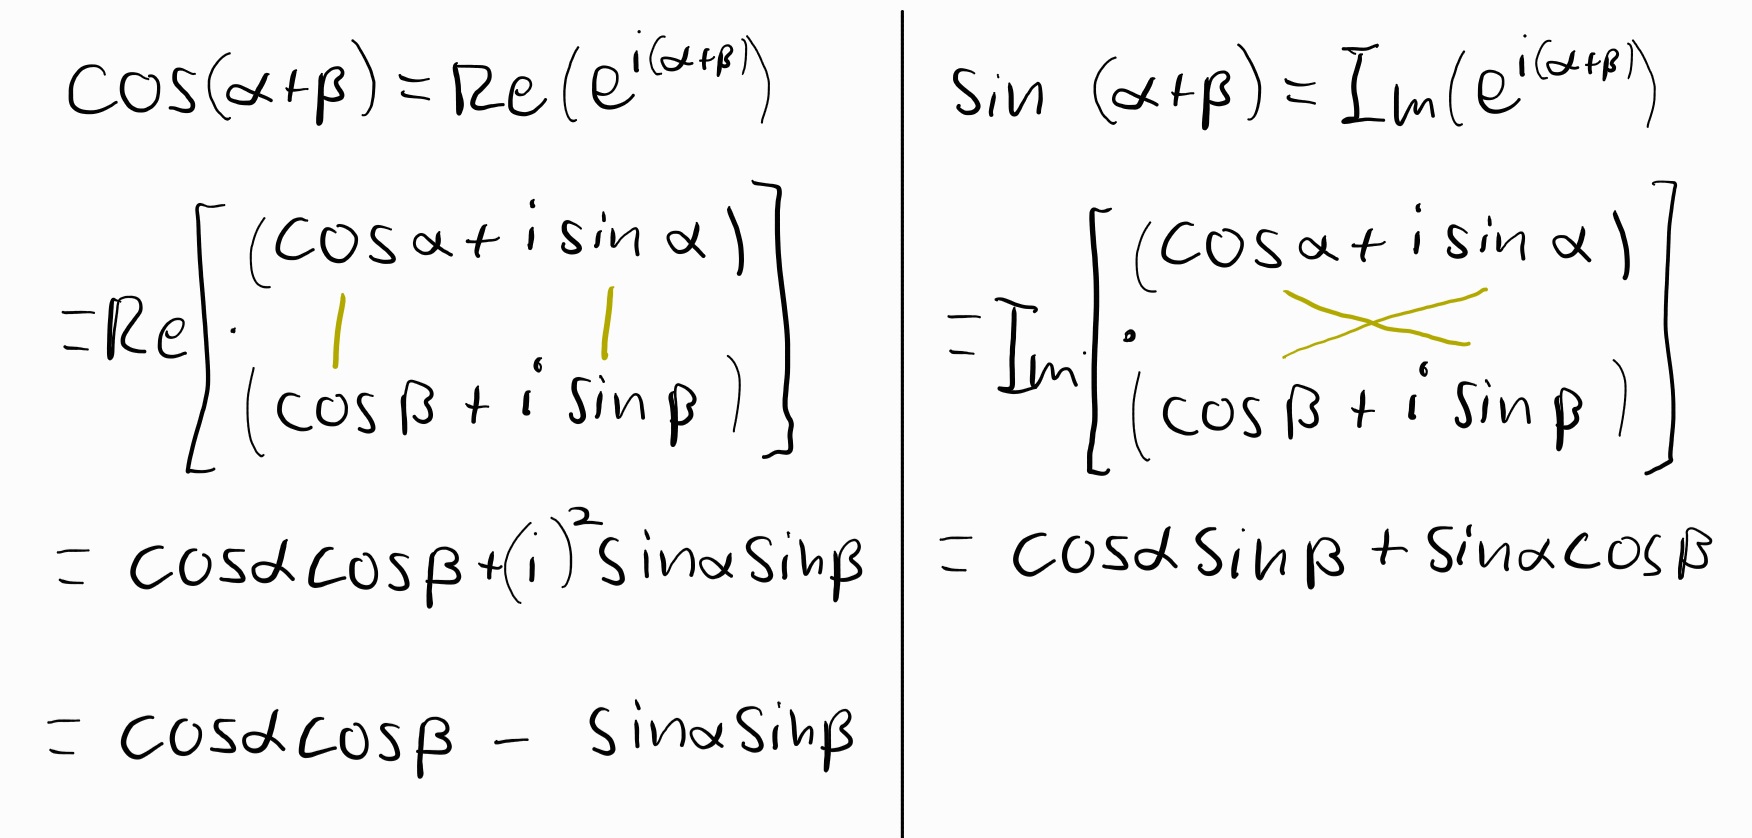 cos(α+β) = Re(e^{i(α+β)})
= Re[(cos α + i sin α)
·
(cos β + i sin β)]
= cosα cosβ + (i)² sinα sinβ
= cosα cosβ − sinα sinβ
sin (α+β) = Im(e^{i(α+β)})
= Im[(cos α + i sin α)
·
(cos β + i sin β)]
= cosα sinβ + sinα cosβ